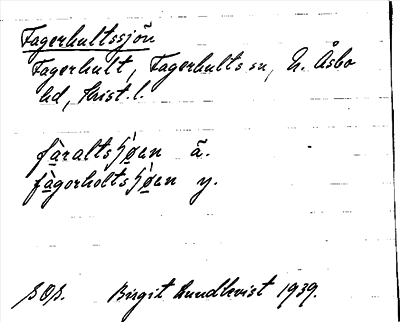 Fagerhultssjön
Fagerhult, Fagerhults sn, N. Åsbo
hd, Krist. l.
fàraltsjǿen ä.
fàgorholtsjǿen y.
SOS. Birgit Lundkvist 1939.